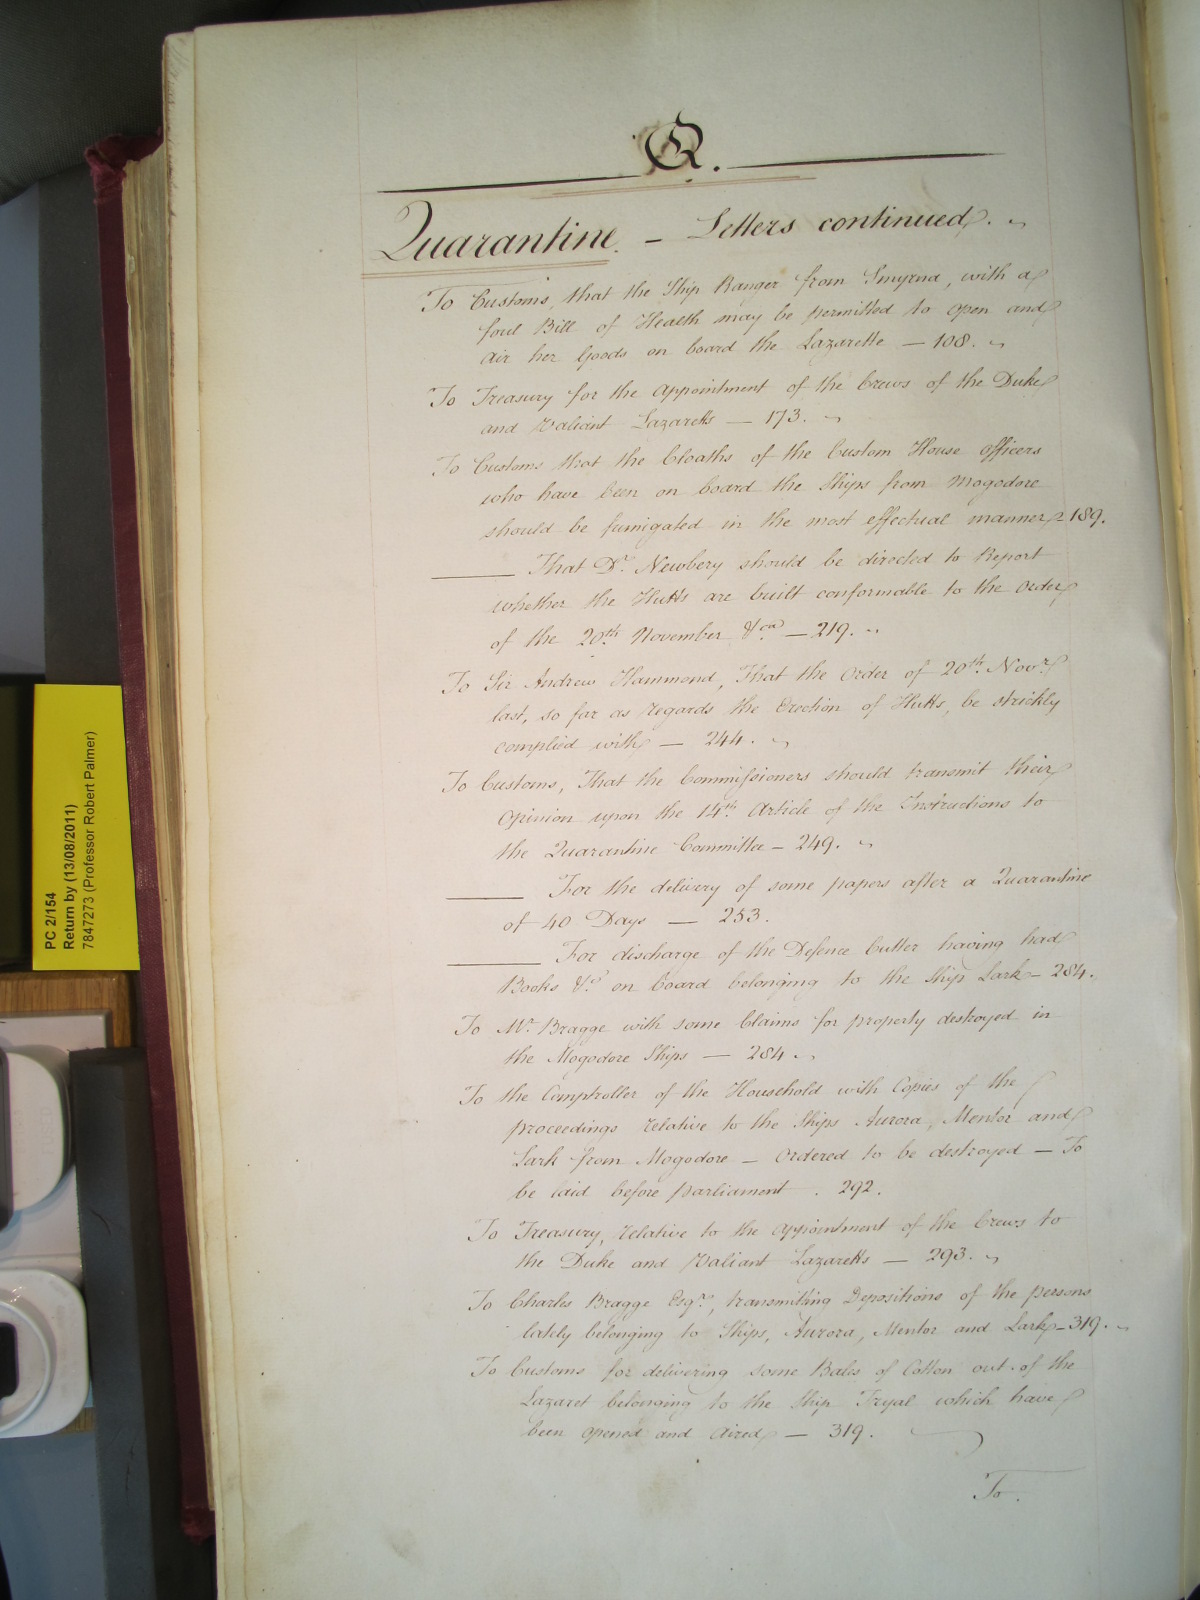 Q.
Quarantine. — Letters continued.
To Customs, that the Ship Ranger from Smyrna, with a
foul Bill of Health may be permitted to open and
air her Goods on board the Lazarette — 108.
To Treasury for the appointment of the Crews of the Duke
and Valiant Lazaretts — 173.
To Customs that the Cloaths of the Custom House officers
who have been on board the Ships from Mogodore
should be fumigated in the most effectual manner 189.
——— That Dr. Newbery should be directed to Report
whether the Hutts are built conformable to the Order
of the 20th November &ca — 219.
To Sir Andrew Hammond, That the Order of 20th Novr.
last, so far as regards the Erection of Hutts, be strickly
complied with — 244.
To Customs, That the Commissioners should transmit their
Opinion upon the 14th Article of the Instructions to
the Quarantine Committee — 249.
——— For the delivery of some papers after a Quarantine
of 40 Days — 253.
——— For discharge of the Defence Cutter having had
Books &c on board belonging to the Ship Lark — 284.
To Mr. Bragge with some Claims for property destroyed in
the Mogodore Ships — 284
To the Comptroller of the Household with Copies of the
proceedings relative to the Ships Aurora, Mentor and
Lark from Mogodore — Ordered to be destroyed — To
be laid before parliament . 292.
To Treasury, relative to the appointment of the Crews to
the Duke and Valiant Lazaretts — 293.
To Charles Bragge Esqr., transmitting Depositions of the persons
lately belonging to Ships, Aurora, Mentor and Lark — 319.
To Customs for delivering some Bales of Cotton out of the
Lazaret belonging to the Ship Tryal which have
been opened and Aired — 319.
To.
PC 2/154
Return by (13/08/2011)
7847273 (Professor Robert Palmer)